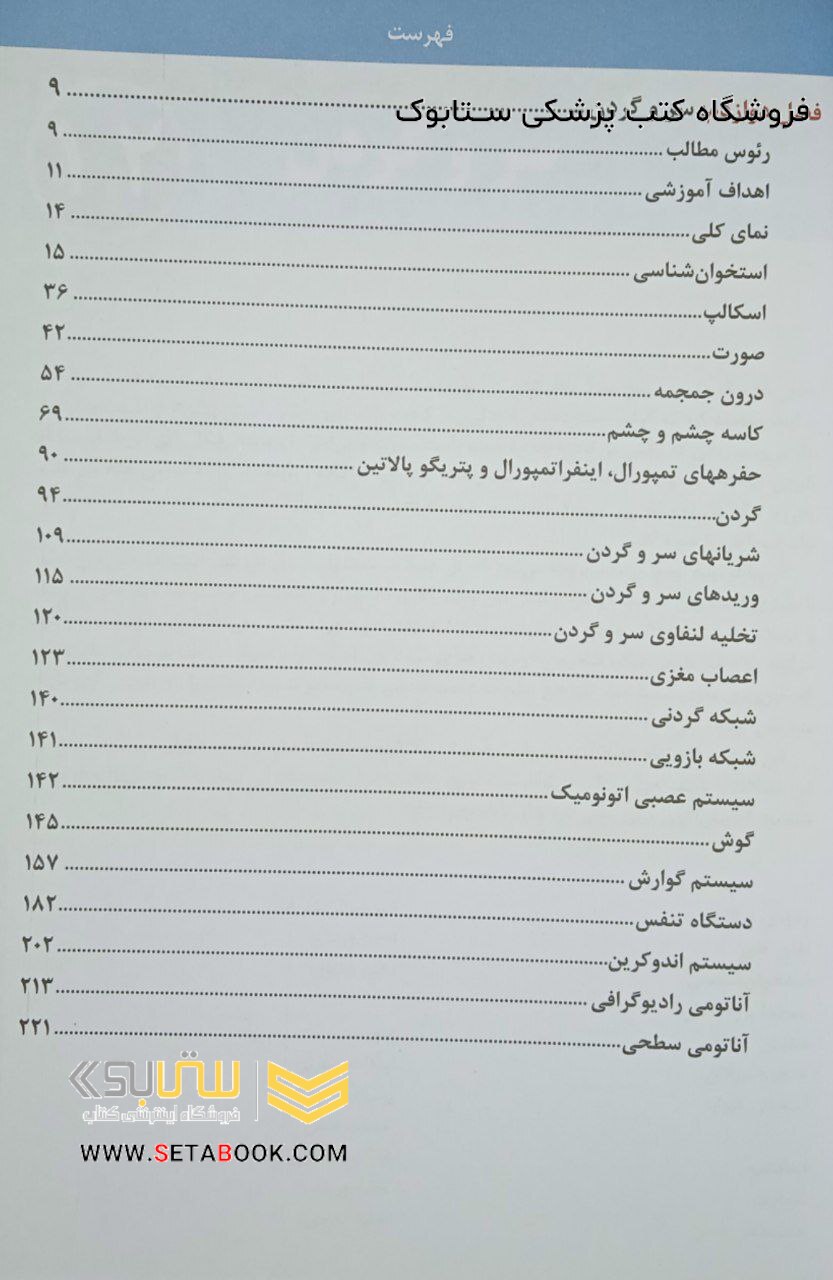 فهرست
سر و گردن ........ ۹
فروشگاه کتب پزشکی ستابوک
رئوس مطالب ........ ۹
اهداف آموزشی ........ ۱۱
نمای کلی ........ ۱۴
استخوان‌شناسی ........ ۱۵
اسکالپ ........ ۳۶
صورت ........ ۴۲
درون جمجمه ........ ۵۴
کاسه چشم و چشم ........ ۶۹
حفرههای تمپورال، اینفراتمپورال و پتریگو پالاتین ........ ۹۰
گردن ........ ۹۴
شریانهای سر و گردن ........ ۱۰۹
وریدهای سر و گردن ........ ۱۱۵
تخلیه لنفاوی سر و گردن ........ ۱۲۰
اعصاب مغزی ........ ۱۲۳
شبکه گردنی ........ ۱۴۰
شبکه بازویی ........ ۱۴۱
سیستم عصبی اتونومیک ........ ۱۴۲
گوش ........ ۱۴۵
سیستم گوارش ........ ۱۵۷
دستگاه تنفس ........ ۱۸۲
سیستم اندوکرین ........ ۲۰۲
آناتومی رادیوگرافی ........ ۲۱۳
آناتومی سطحی ........ ۲۲۱
فروشگاه اینترنتی کتاب
WWW.SETABOOK.COM